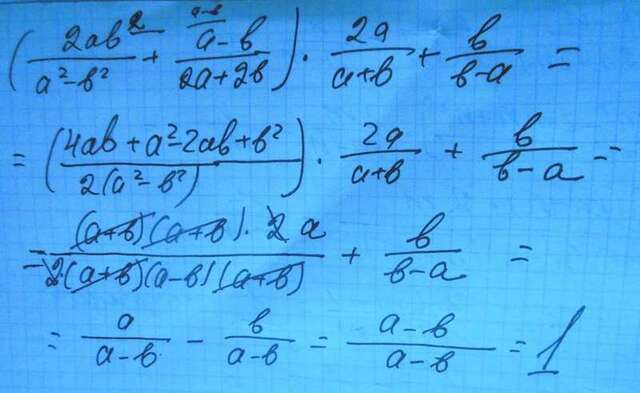 (2ab^2/(a²-b²) + (a-b)/(2a+2b)) · 2a/(a+b) + b/(b-a) =
= ((4ab+a²-2ab+b²)/(2(a²-b²))) · 2a/(a+b) + b/(b-a) =
= ((a+b)(a+b)·2a)/(2(a+b)(a-b)(a+b)) + b/(b-a) =
= a/(a-b) - b/(a-b) = (a-b)/(a-b) = 1